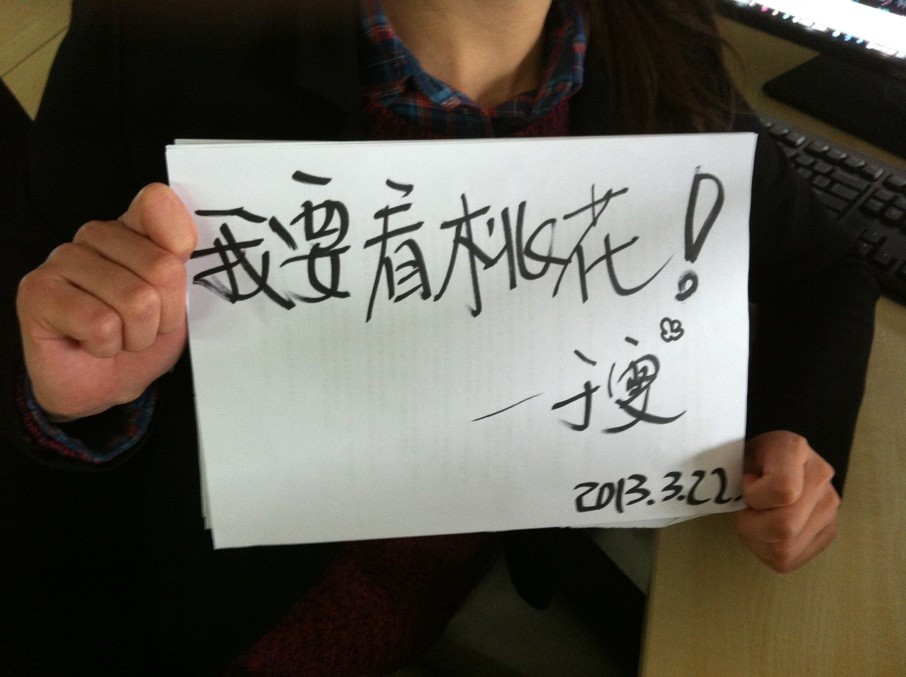 我要看桃花!
一于雯
2013.3.22.